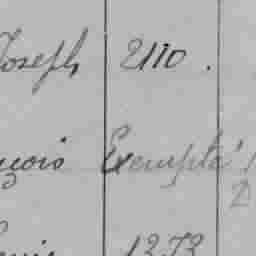 Joseph 2110.
çois Exempté
1373